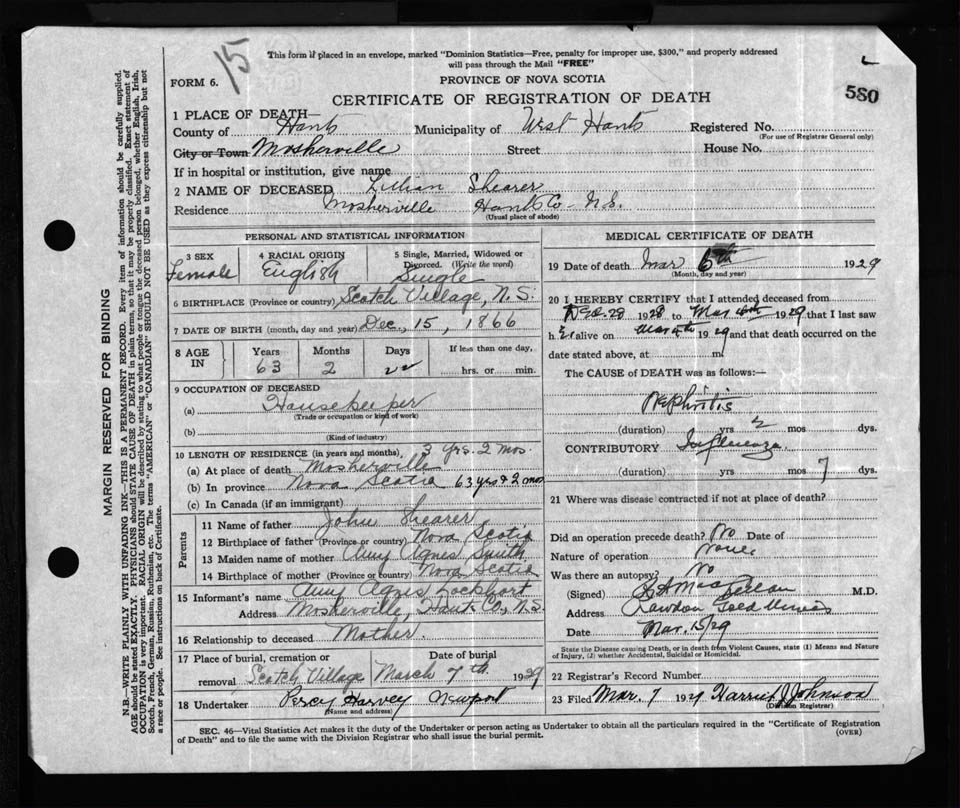 This form if placed in an envelope, marked "Dominion Statistics—Free, penalty for improper use, $300," and properly addressed
will pass through the Mail "FREE"
15
FORM 6.
PROVINCE OF NOVA SCOTIA
CERTIFICATE OF REGISTRATION OF DEATH
580
1 PLACE OF DEATH—
County of Hants Municipality of West Hants Registered No.
(For use of Registrar General only)
City or Town Mosherville Street House No.
If in hospital or institution, give name
2 NAME OF DECEASED Lillian Shearer
Residence Mosherville Hants Co - N.S.
(Usual place of abode)
PERSONAL AND STATISTICAL INFORMATION
3 SEX 4 RACIAL ORIGIN 5 Single, Married, Widowed or
Divorced. (Write the word)
Female English Single
6 BIRTHPLACE (Province or country) Scotch Village, N.S.
7 DATE OF BIRTH (month, day and year) Dec., 15, 1866
8 AGE IN Years Months Days If less than one day,
63 2 22 hrs. or min.
9 OCCUPATION OF DECEASED
(a) Housekeeper
(Trade or occupation or kind of work)
(b)
(Kind of industry)
10 LENGTH OF RESIDENCE (in years and months), 3 yrs. 2 mos.
(a) At place of death Mosherville
(b) In province Nova Scotia 63 yrs & 2 mos
(c) In Canada (if an immigrant)
Parents
11 Name of father John Shearer
12 Birthplace of father (Province or country) Nova Scotia
13 Maiden name of mother Amy Agnes Smith
14 Birthplace of mother (Province or country) Nova Scotia
15 Informant's name Amy Agnes Lockhart
Address Mosherville, Hants Co., N.S.
16 Relationship to deceased Mother.
17 Place of burial, cremation or Date of burial
removal Scotch Village March 7th 1929
18 Undertaker Percy Harvey Newport
(Name and address)
MEDICAL CERTIFICATE OF DEATH
19 Date of death Mar 6th 1929
(Month, day and year)
20 I HEREBY CERTIFY that I attended deceased from
Dec. 28 1928 to Mar 4th 1929 that I last saw
h er alive on Mar 4th 1929 and that death occurred on the
date stated above, at m.
The CAUSE of DEATH was as follows:—
Nephritis
(duration) yrs 2 mos dys.
CONTRIBUTORY Influenza
(duration) yrs mos 7 dys.
21 Where was disease contracted if not at place of death?
Did an operation precede death? No Date of
Nature of operation None
Was there an autopsy? No
(Signed) M.D.
Address Rawdon Gold Mines
Date Mar. 15/29
State the Disease causing Death, or in death from Violent Causes, state (1) Means and Nature
of Injury, (2) whether Accidental, Suicidal or Homicidal.
22 Registrar's Record Number
23 Filed Mar. 7 1929 Harriet J Johnson
(Division Registrar)
SEC. 46—Vital Statistics Act makes it the duty of the Undertaker or person acting as Undertaker to obtain all the particulars required in the "Certificate of Registration
of Death" and to file the same with the Division Registrar who shall issue the burial permit.
(OVER)
MARGIN RESERVED FOR BINDING
N.B.—WRITE PLAINLY WITH UNFADING INK—THIS IS A PERMANENT RECORD. Every item of information should be carefully supplied.
AGE should be stated EXACTLY. PHYSICIANS should STATE CAUSE OF DEATH in plain terms, so that it may be properly classified. Exact statement of
OCCUPATION is very important. RACIAL ORIGIN will be described by stating to what people or tongue the deceased person belonged, whether English, Irish,
Scotch, French, German, Russian, Ruthenian, etc. The terms "AMERICAN" or "CANADIAN" SHOULD NOT BE USED as they express citizenship but not
a race or people. See instructions on back of Certificate.